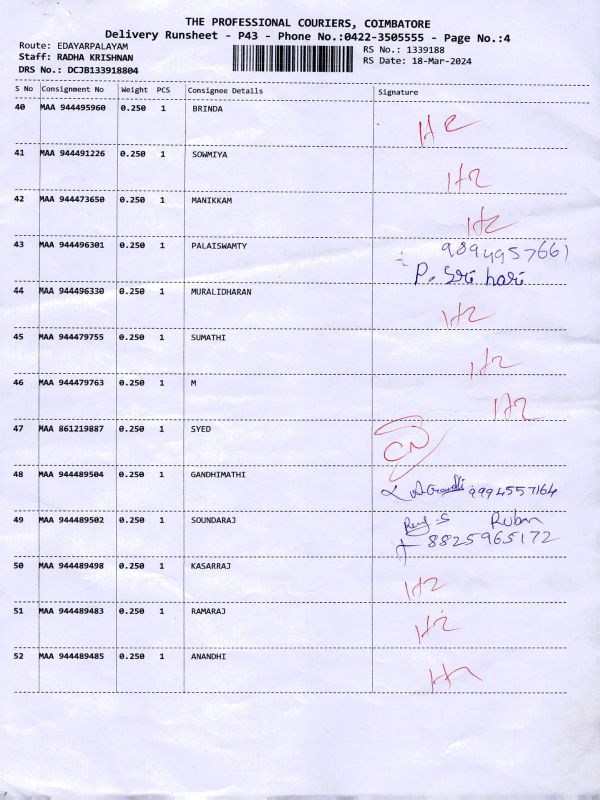 THE PROFESSIONAL COURIERS, COIMBATORE
Delivery Runsheet - P43 - Phone No.:0422-3505555 - Page No.:4
Route: EDAYARPALAYAM
RS No.: 1339188
Staff: RADHA KRISHNAN
RS Date: 18-Mar-2024
DRS No.: DCJB133918804
S No Consignment No Weight PCS Consignee Details Signature
40 MAA 944495960 0.250 1 BRINDA H2
41 MAA 944491226 0.250 1 SOWMIYA H2
42 MAA 944473650 0.250 1 MANIKKAM H2
43 MAA 944496301 0.250 1 PALAISWAMTY 9894957661
P. Sri hari
44 MAA 944496330 0.250 1 MURALIDHARAN H2
45 MAA 944479755 0.250 1 SUMATHI H2
46 MAA 944479763 0.250 1 M H2
47 MAA 861219887 0.250 1 SYED CN
48 MAA 944489504 0.250 1 GANDHIMATHI 9994557164
49 MAA 944489502 0.250 1 SOUNDARAJ Ruban
8825965172
50 MAA 944489498 0.250 1 KASARRAJ H2
51 MAA 944489483 0.250 1 RAMARAJ H2
52 MAA 944489485 0.250 1 ANANDHI